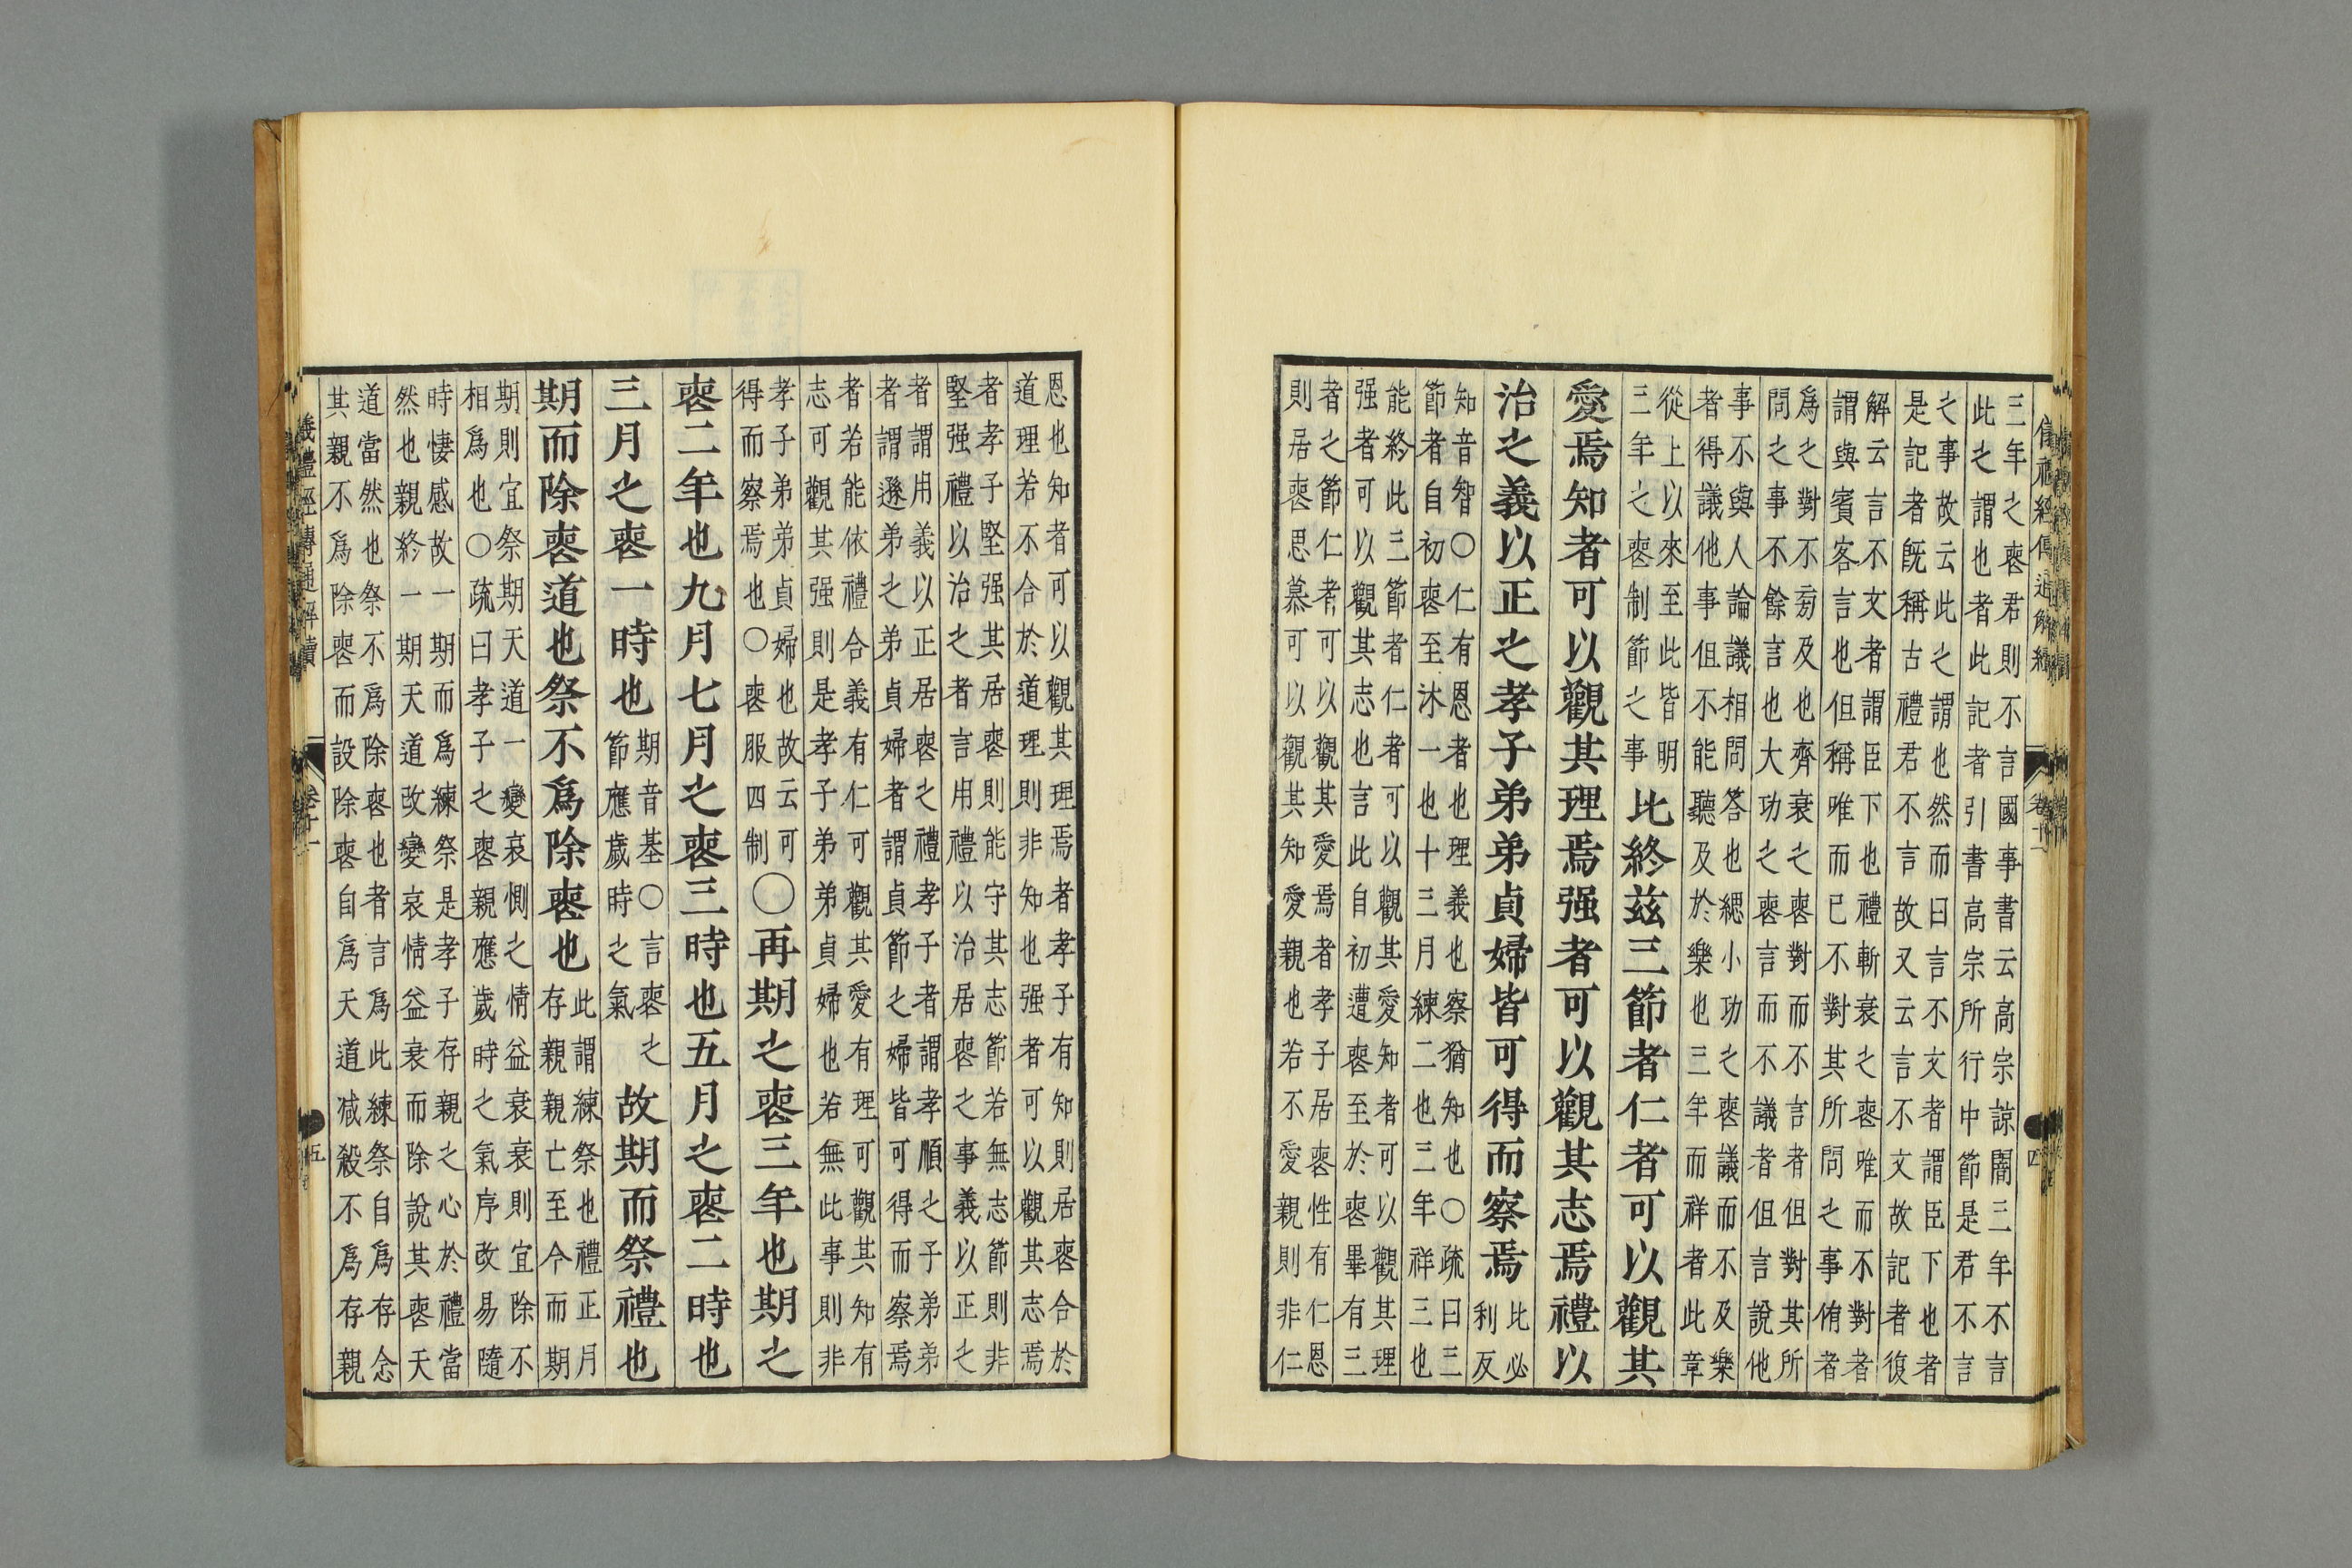 儀禮經傳通解續
卷十一
四
三年之喪君則不言國事書云高宗諒闇三年不言
此之謂也者此記者引書高宗所行中節是君不言
之事故云此之謂也然而曰言不文者謂臣下也者
是記者既稱古禮君不言故又云言不文故記者復
解云言不文者謂臣下也禮斬衰之喪唯而不對者
謂與賓客言也但稱唯而已不對其所問之事侑者
爲之對不旁及也齊衰之喪對而不言者但對其所
問之事不餘言也大功之喪言而不議者但言說他
事不與人論議相問答也緦小功之喪議而不及樂
者得議他事但不能聽及於樂也三年而祥者此章
從上以來至此皆明
三年之喪制節之事
比終茲三節者仁者可以觀其
愛焉知者可以觀其理焉强者可以觀其志焉禮以
治之義以正之孝子弟弟貞婦皆可得而察焉
比必
利反
知音智○仁有恩者也理義也察猶知也○疏曰三
節者自初喪至沐一也十三月練二也三年祥三也
能終此三節者仁者可以觀其愛知者可以觀其理
强者可以觀其志也言此自初遭喪至於喪畢有三
者之節仁者可以觀其愛焉者孝子居喪性有仁恩
則居喪思慕可以觀其知愛親也若不愛親則非仁
恩也知者可以觀其理焉者孝子有知則居喪合於
道理若不合於道理則非知也强者可以觀其志焉
者孝子堅强其居喪則能守其志節若無志節則非
堅强禮以治之者言用禮以治居喪之事義以正之
者謂用義以正居喪之禮孝子者謂孝順之子弟弟
者謂遜弟之弟貞婦者謂貞節之婦皆可得而察焉
者若能依禮合義有仁可觀其愛有理可觀其知有
志可觀其强則是孝子弟弟貞婦也若無此事則非
孝子弟弟貞婦也故云可
得而察焉也○喪服四制
○再期之喪三年也期之
喪二年也九月七月之喪三時也五月之喪二時也
三月之喪一時也
期音基○言喪之
節應歲時之氣
故期而祭禮也
期而除喪道也祭不爲除喪也
此謂練祭也禮正月
存親親親亡至今而期
期則宜祭期天道一變哀惻之情益衰衰則宜除不
相爲也○疏曰孝子之喪親應歲時之氣序改易隨
時悽感故一期而爲練祭是孝子存親之心於禮當
然也親終一期天道改變哀情益衰而除說其喪天
道當然也祭不爲除喪也者言爲此練祭自爲存念
其親不爲除喪而設除喪自爲天道减殺不爲存親
儀禮經傳通解續
卷十一
五